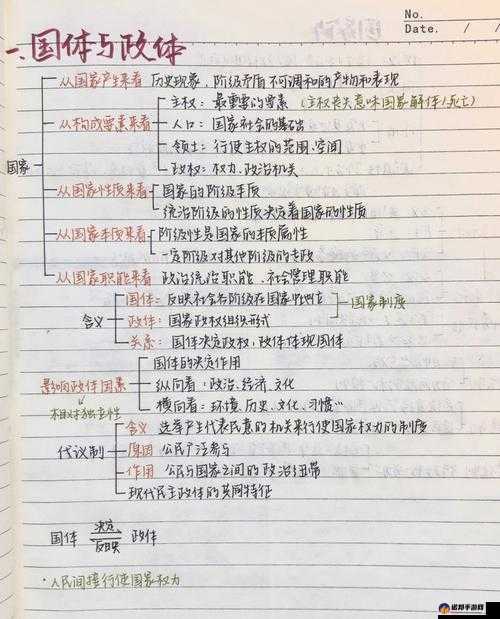 No.
Date. / /
一.国体与政体
从国家产生来看 历史现象,阶级矛盾不可调和的产物和表现
主权:最重要的要素(主权丧失意味国家解体/死亡)
从构成要素来看 人口:国家社会的基础
领土:行使主权的范围、空间
政权:权力、政治机关
国家
从国家性质来看 国家的阶级本质
统治阶级的性质决定着国家的性质
从国家本质来看 阶级性是国家的本质属性
一定阶级对其他阶级的专政
从国家职能来看 政治统治职能、社会管理职能
国体:反映社会各阶级在国家的地位
国家制度
含义 政体:国家政权组织形式
关系:国体决定政权,政体体现国体
国体的决定作用
影响政体因素 纵向看:政治、经济、文化
相对独立性 横向看:环境、历史、文化、习惯
含义 选举产生代表民意的机关来行使国家权力的制度
代议制 原因 公民广泛参与
作用 公民与国家之间的政治纽带
现代民主政体的共同特征
国体 决定 政体
反映
·人民间接行使国家权力
诺邦手游网